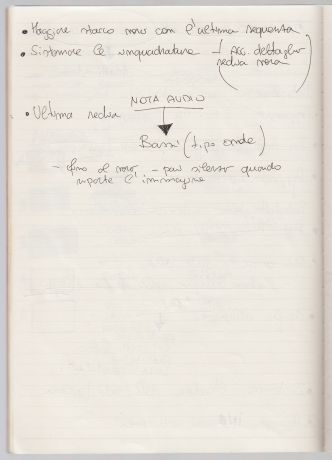 • Maggiore stacco nero con l'ultima sequenza
• Sistemare le inquadrature → (Acc. dettaglio
sedia nera)
NOTA AUDIO
• Ultima sedia
Bassi (tipo onde)
- fino al nero, - poi silenzio quando
riparte l'immagine